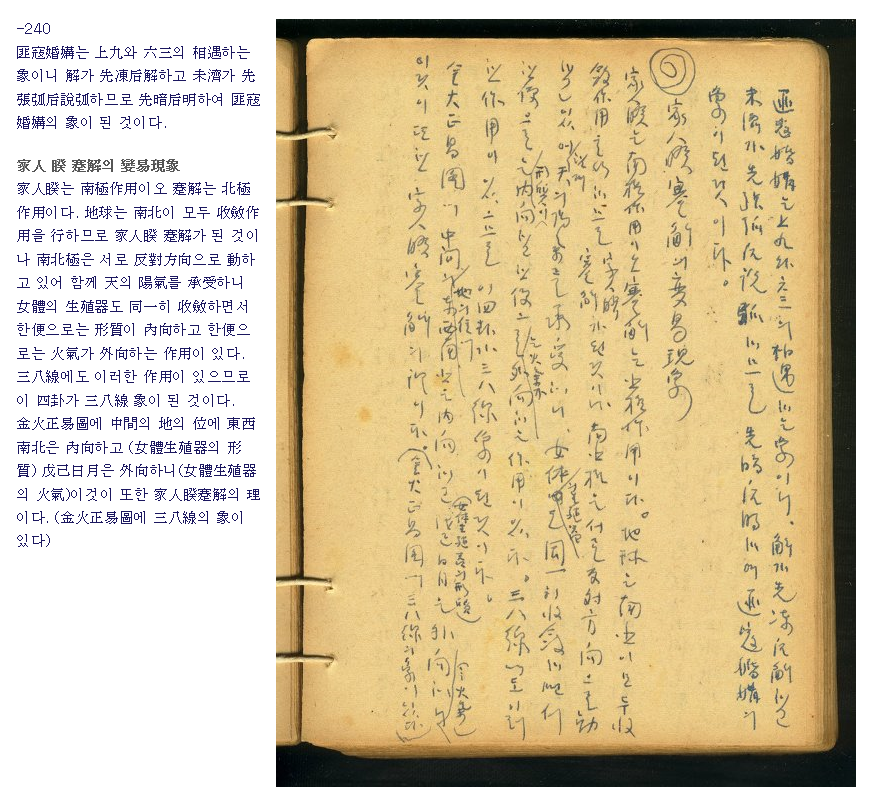 -240
匪寇婚媾는 上九와 六三의 相遇하는
象이니 解가 先凍后解하고 未濟가 先
張弧后說弧하므로 先暗后明하여 匪寇
婚媾의 象이 된 것이다.
家人 睽 蹇解의 變易現象
家人睽는 南極作用이오 蹇解는 北極
作用이다. 地球는 南北이 모두 收斂作
用을 行하므로 家人睽 蹇解가 된 것이
나 南北極은 서로 反對方向으로 動하
고 있어 함께 天의 陽氣를 承受하니
女體의 生殖器도 同一히 收斂하면서
한便으로는 形質이 內向하고 한便으
로는 火氣가 外向하는 作用이 있다.
三八線에도 이러한 作用이 있으므로
이 四卦가 三八線 象이 된 것이다.
金火正易圖에 中間의 地의 位에 東西
南北은 內向하고 (女體生殖器의 形
質) 戊己日月은 外向하니(女體生殖器
의 火氣)이것이 또한 家人睽蹇解의 理
이다. (金火正易圖에 三八線의 象이
있다)
匪寇婚媾는 上九와 六三의 相遇하는 象이니, 解가 先凍后解하고
未濟가 先張弧后說弧하므로 先暗后明하여 匪寇婚媾의
象이 된 것이다.
家人睽蹇解의 變易現象
家人睽는 南極作用이오 蹇解는 北極作用이다. 地球는 南北이 모두 收
斂作用을 行하므로 家人睽 蹇解가 된 것이나 南北極은 서로 反對方向으로 動
하고 있어 함께 天의 陽氣를 承受하니, 女体의 生殖器도 同一히 收斂하면서
한便으로는 形質이 內向하고 한便으로는 火氣가 外向하는 作用이 있다. 三八線에도 이러
한 作用이 있으므로 이 四卦가 三八線 象이 된 것이다.
金火正易圖에 中間의 地의 位에 東西南北은 內向하고 (女體生殖器의 形質) 戊己日月은 外向하니
이것이 또한 家人睽蹇解의 理이다. (金火正易圖에 三八線의 象이 있다)